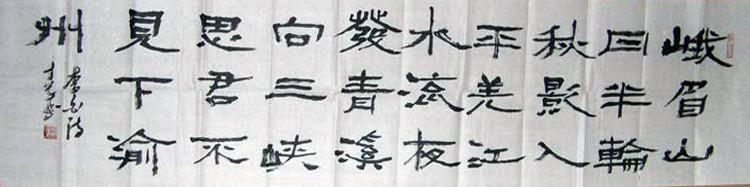 峨眉山
月半輪
秋影入
平羌江
水流夜
發青溪
向三峽
思君不
見下渝
州
李白詩